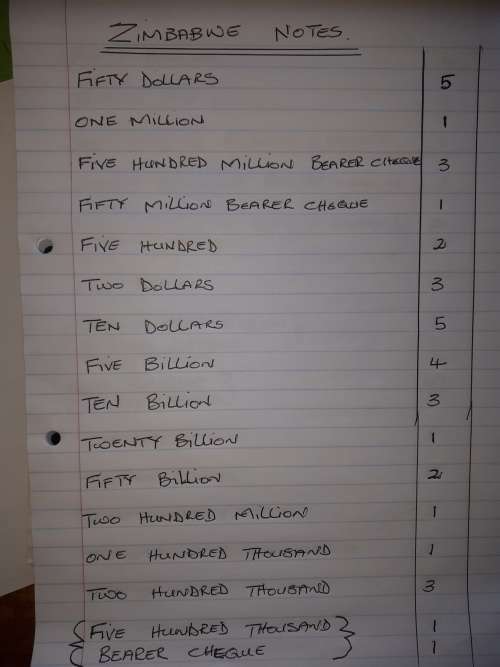 ZIMBABWE NOTES.
FIFTY DOLLARS 5
ONE MILLION 1
FIVE HUNDRED MILLION BEARER CHEQUE 3
FIFTY MILLION BEARER CHEQUE 1
FIVE HUNDRED 2
TWO DOLLARS 3
TEN DOLLARS 5
FIVE BILLION 4
TEN BILLION 3
TWENTY BILLION 1
FIFTY BILLION 2
TWO HUNDRED MILLION 1
ONE HUNDRED THOUSAND 1
TWO HUNDRED THOUSAND 3
{ FIVE HUNDRED THOUSAND } 1
BEARER CHEQUE 1